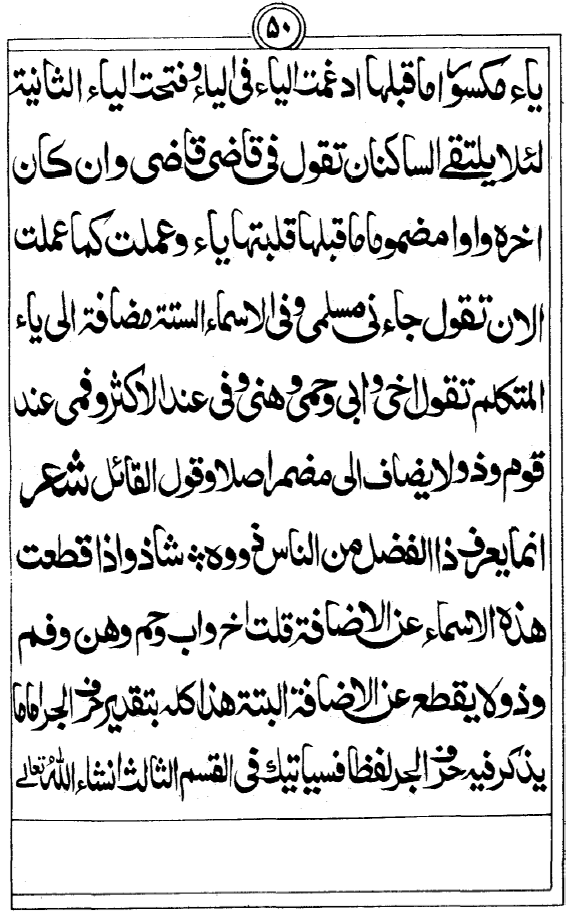 ۵۰
یاء مکسورا ما قبلها ادغمت الیاء فی الیاء وفتحت الیاء الثانیة
لئلا یلتقے الساکنان تقول فی قاضی قاضی وان کان
اخره واوا مضموما ما قبلها قلبتها یاء وعملت کما عملت
الان تقول جاءنی مسلمی وفی الاسماء الستة مضافة الی یاء
المتکلم تقول اخی وابی وحمی وهنی وفی عند الاکثر وفمی عند
قوم وذو لا یضاف الی مضمر اصلا وقول القائل شعر
انما یعرف ذا الفضل من الناس ذووه ؞ شاذ واذا قطعت
هذه الاسماء عن الاضافة قلت اخ واب وحم وهن وفم
وذو لا یقطع عن الاضافة البتة هذا کله بتقدیر حرف الجر اما ما
یذکر فیه حرف الجر لفظا فسیاتیك فی القسم الثالث انشاء الله تعالے